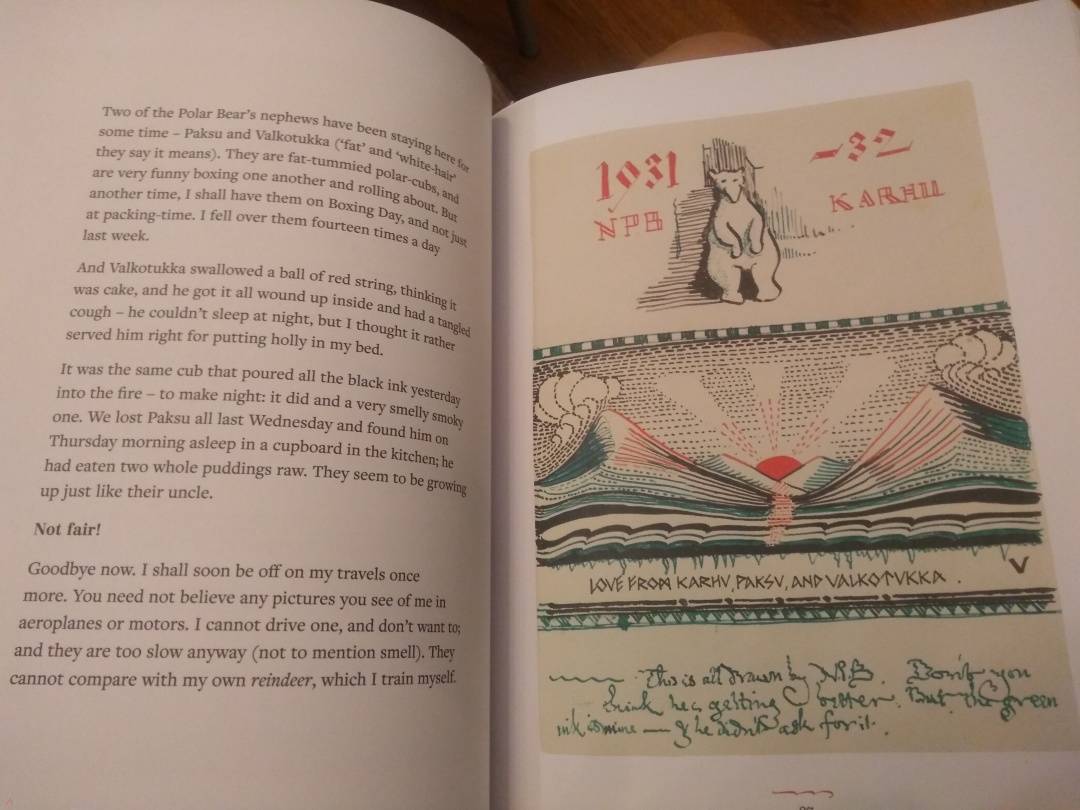 Two of the Polar Bear's nephews have been staying here for
some time – Paksu and Valkotukka ('fat' and 'white-hair'
they say it means). They are fat-tummied polar-cubs, and
are very funny boxing one another and rolling about. But
another time, I shall have them on Boxing Day, and not just
at packing-time. I fell over them fourteen times a day
last week.
And Valkotukka swallowed a ball of red string, thinking it
was cake, and he got it all wound up inside and had a tangled
cough – he couldn't sleep at night, but I thought it rather
served him right for putting holly in my bed.
It was the same cub that poured all the black ink yesterday
into the fire – to make night: it did and a very smelly smoky
one. We lost Paksu all last Wednesday and found him on
Thursday morning asleep in a cupboard in the kitchen; he
had eaten two whole puddings raw. They seem to be growing
up just like their uncle.
Not fair!
Goodbye now. I shall soon be off on my travels once
more. You need not believe any pictures you see of me in
aeroplanes or motors. I cannot drive one, and don't want to;
and they are too slow anyway (not to mention smell). They
cannot compare with my own reindeer, which I train myself.
1931 –32
NPB KARHU
LOVE FROM KARHV, PAKSV, AND VALKOTVKKA.
V
This is all drawn by NPB. Don't you
think he is getting better. But the green
ink is mine — & he didn't ask for it.